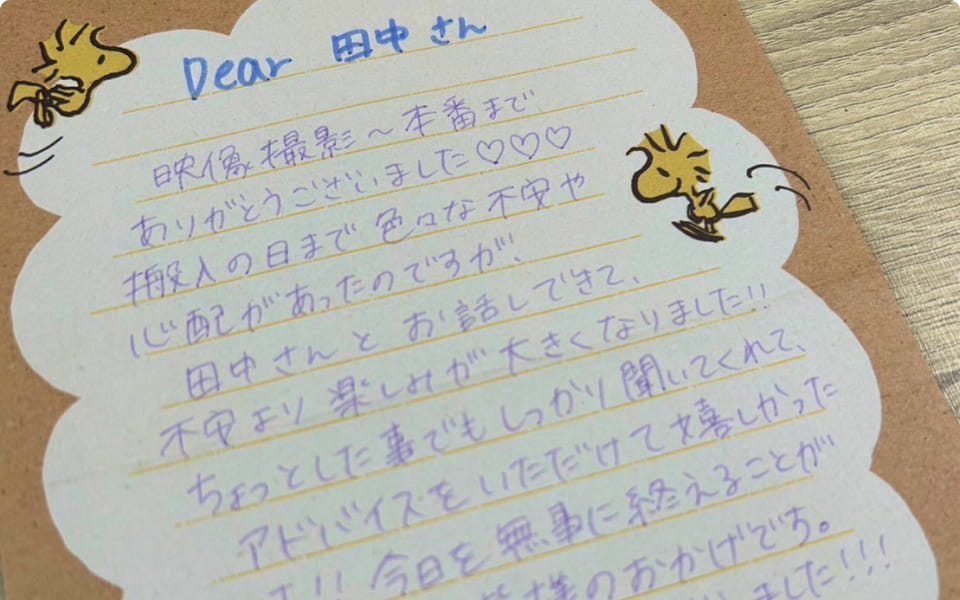 Dear 田中さん
映像撮影～本番まで
ありがとうございました♡♡♡
搬入の日まで色々な不安や
心配があったのですが、
田中さんとお話しできて、
不安より楽しみが大きくなりました!!
ちょっとした事でもしっかり聞いてくれて、
アドバイスをいただけて嬉しかった
です!! 今日を無事に終えることが
様のおかげです。
ました!!!